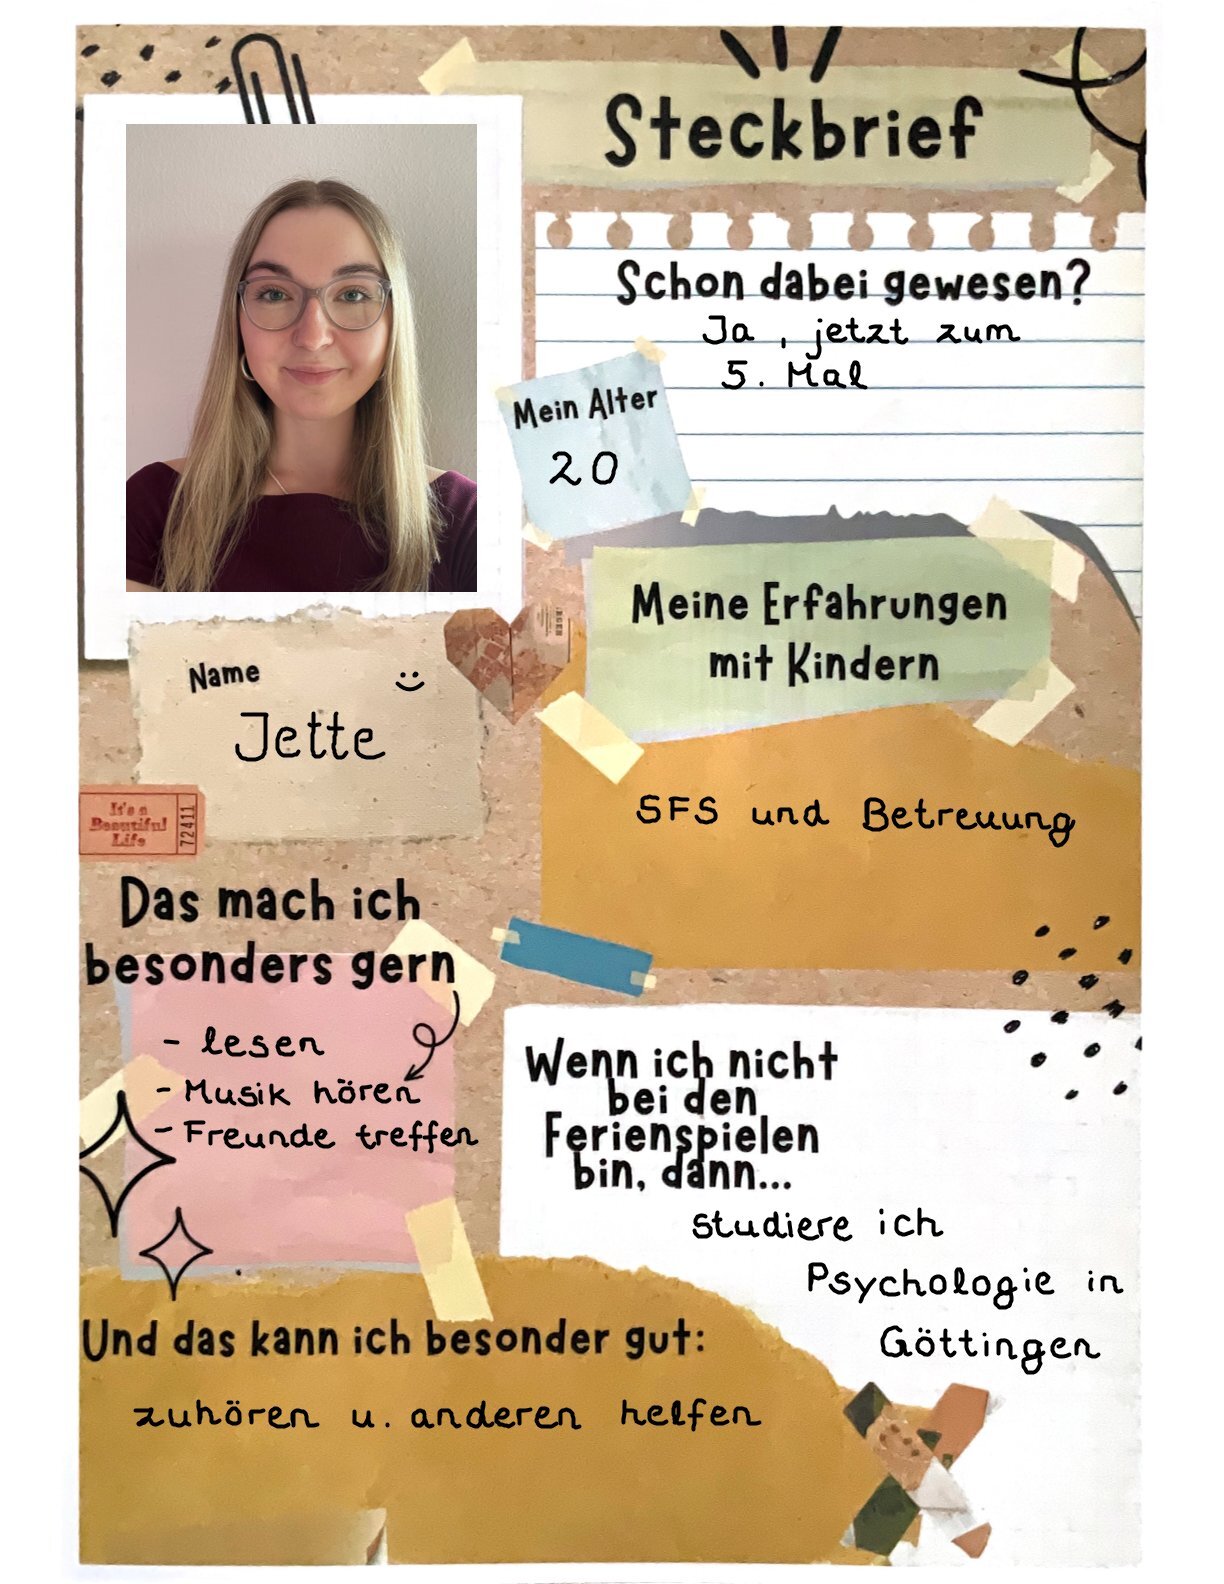 Steckbrief
Schon dabei gewesen?
Ja, jetzt zum
5. Mal
Mein Alter
20
Meine Erfahrungen
mit Kindern
SFS und Betreuung
Name
Jette
It's a
Beautiful
Life
72411
Das mach ich
besonders gern
- lesen
- Musik hören
- Freunde treffen
Wenn ich nicht
bei den
Ferienspielen
bin, dann...
studiere ich
Psychologie in
Göttingen
Und das kann ich besonder gut:
zuhören u. anderen helfen